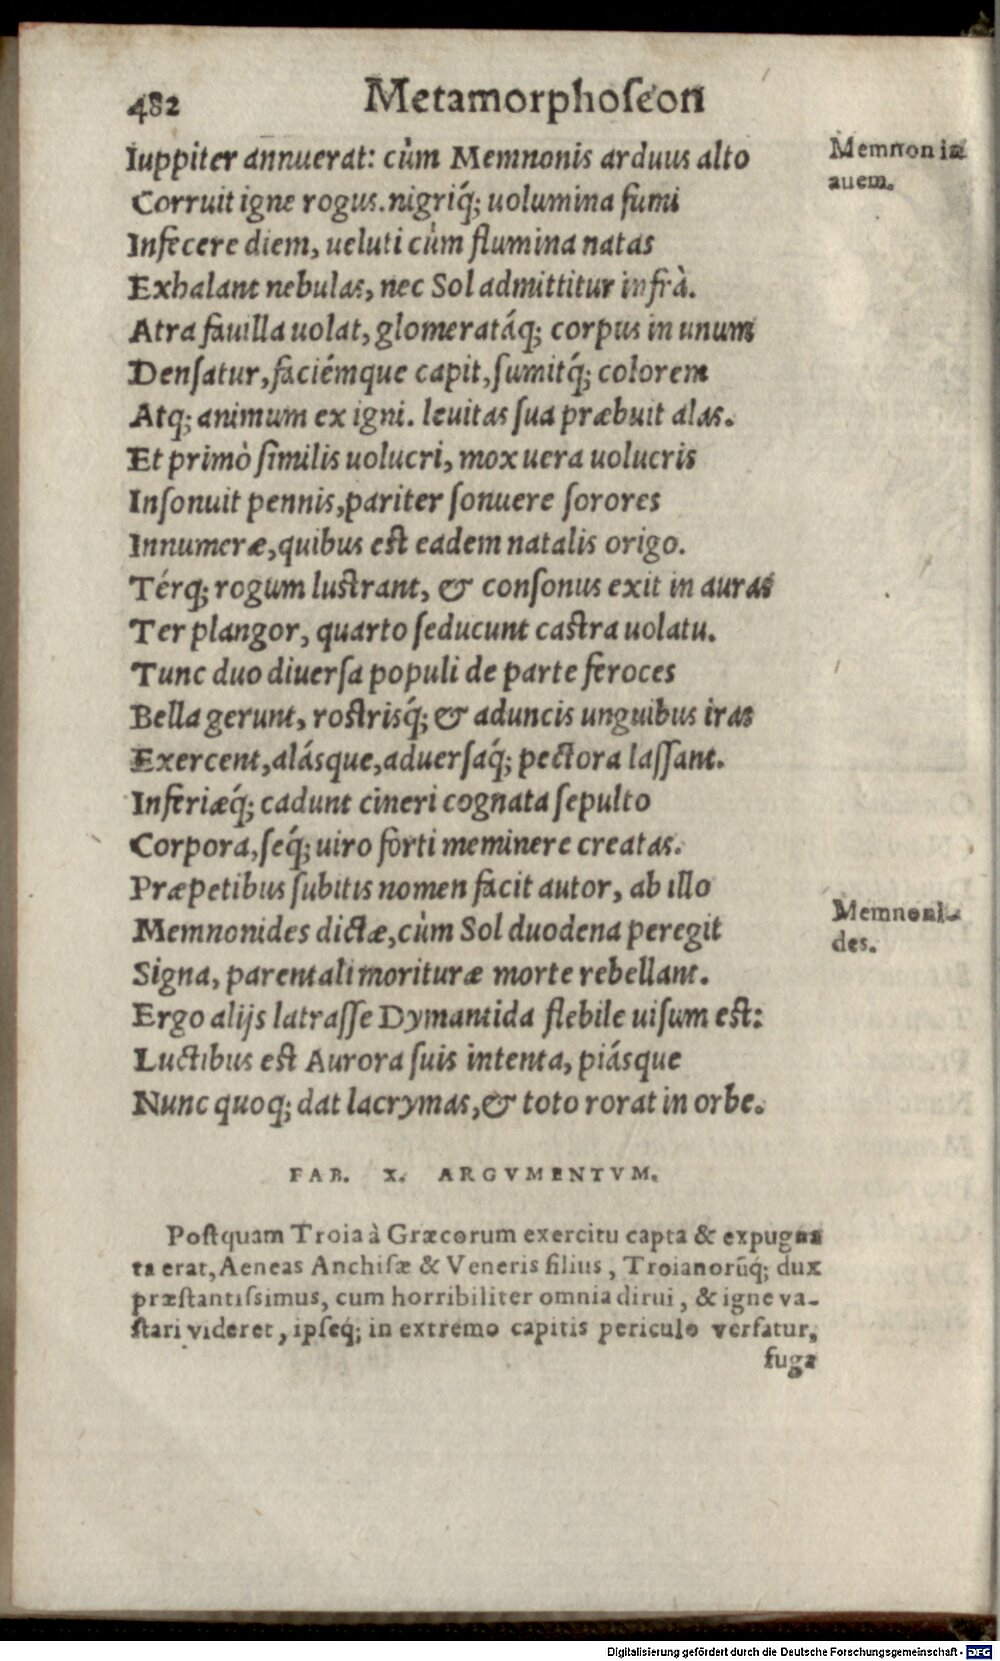 482 Metamorphoſeon
Iuppiter annuerat: cùm Memnonis arduus alto
Corruit igne rogus. nigriq́; uolumina fumi
Infecere diem, ueluti cùm flumina natas
Exhalant nebulas, nec Sol admittitur infrà.
Atra fauilla uolat, glomeratáq; corpus in unum
Denſatur, faciémque capit, ſumitq́; colorem
Atq; animum ex igni. leuitas ſua præbuit alas.
Et primò ſimilis uolucri, mox uera uolucris
Inſonuit pennis, pariter ſonuere ſorores
Innumeræ, quibus eſt eadem natalis origo.
Térq; rogum luſtrant, & conſonus exit in auras
Ter plangor, quarto ſeducunt caſtra uolatu.
Tunc duo diuerſa populi de parte feroces
Bella gerunt, roſtrisq́; & aduncis unguibus iras
Exercent, alásque, aduerſaq́; pectora laſſant.
Inferiæq́; cadunt cineri cognata ſepulto
Corpora, ſeq́; uiro forti meminere creatas.
Præpetibus ſubitis nomen facit autor, ab illo
Memnonides dictæ, cùm Sol duodena peregit
Signa, parentali morituræ morte rebellant.
Ergo alijs latraſſe Dymantida flebile uiſum eſt:
Luctibus eſt Aurora ſuis intenta, piásque
Nunc quoq; dat lacrymas, & toto rorat in orbe.
Memnoniæ
auem.
Memnoni-
des.
FAB. X. ARGVMENTVM.
Poſtquam Troia à Græcorum exercitu capta & expugna
ta erat, Aeneas Anchiſæ & Veneris filius, Troianorūq́; dux
præſtantiſsimus, cum horribiliter omnia dirui, & igne va-
ſtari videret, ipſeq́; in extremo capitis periculo verſatur,
fuga
Digitalisierung gefördert durch die Deutsche Forschungsgemeinschaft - DFG